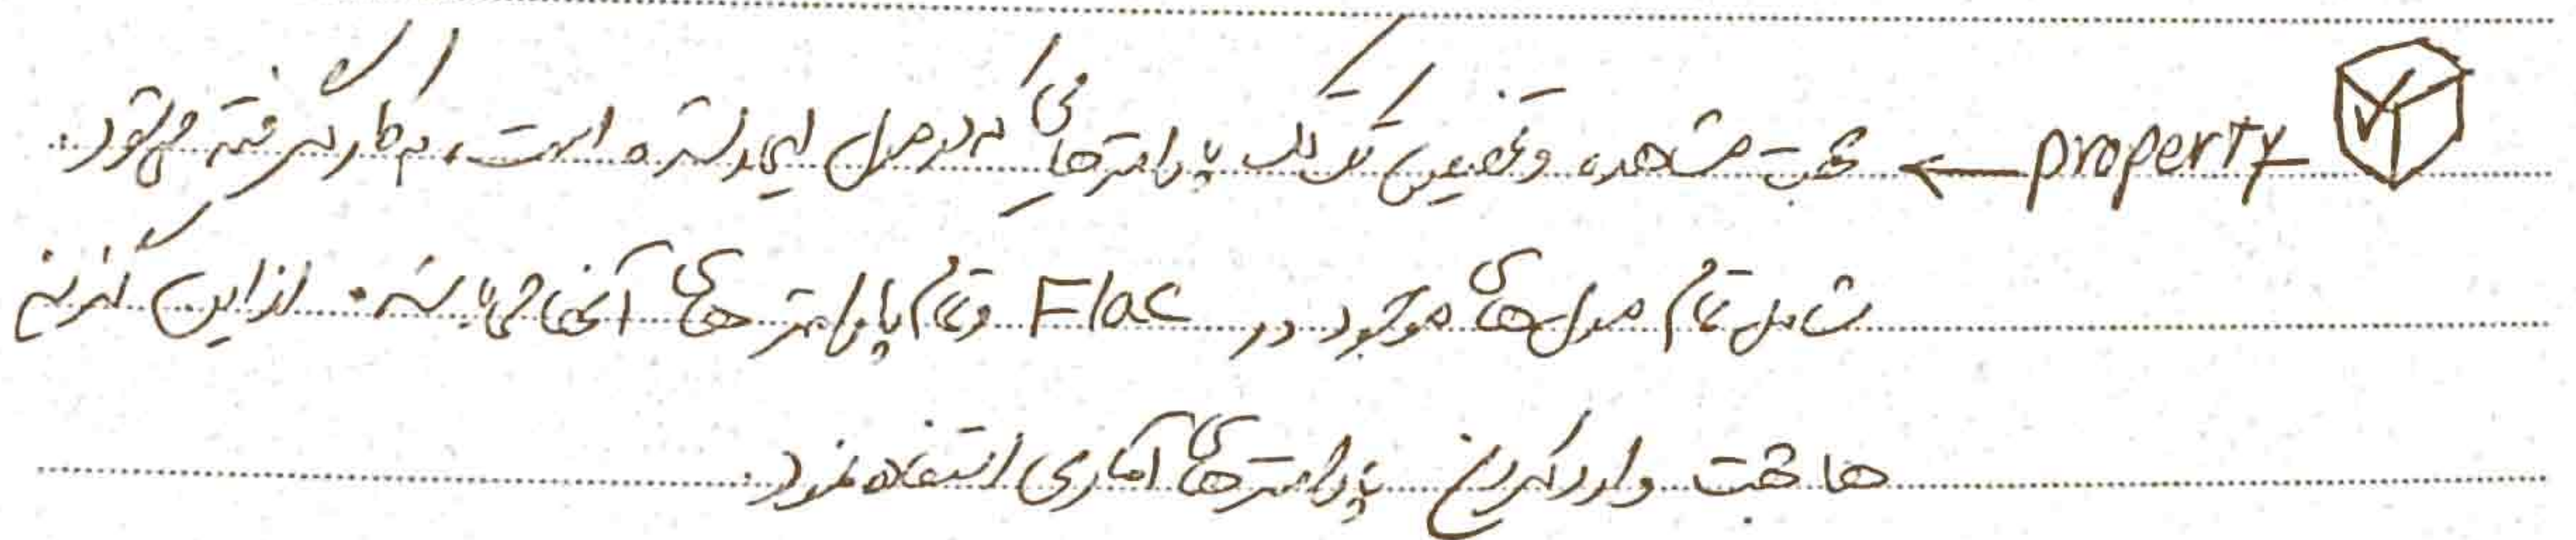 property ← جهت مشاهده و تخصیص تک تک پارامترهایی که در مدل ایجاد شده است، به کار گرفته می‌شود.
شامل تمام مدل‌های موجود در Flac و تمام پارامترهای آنها می‌باشد. از این گزینه
ها جهت وارد کردن پارامترهای آماری استفاده نمود.